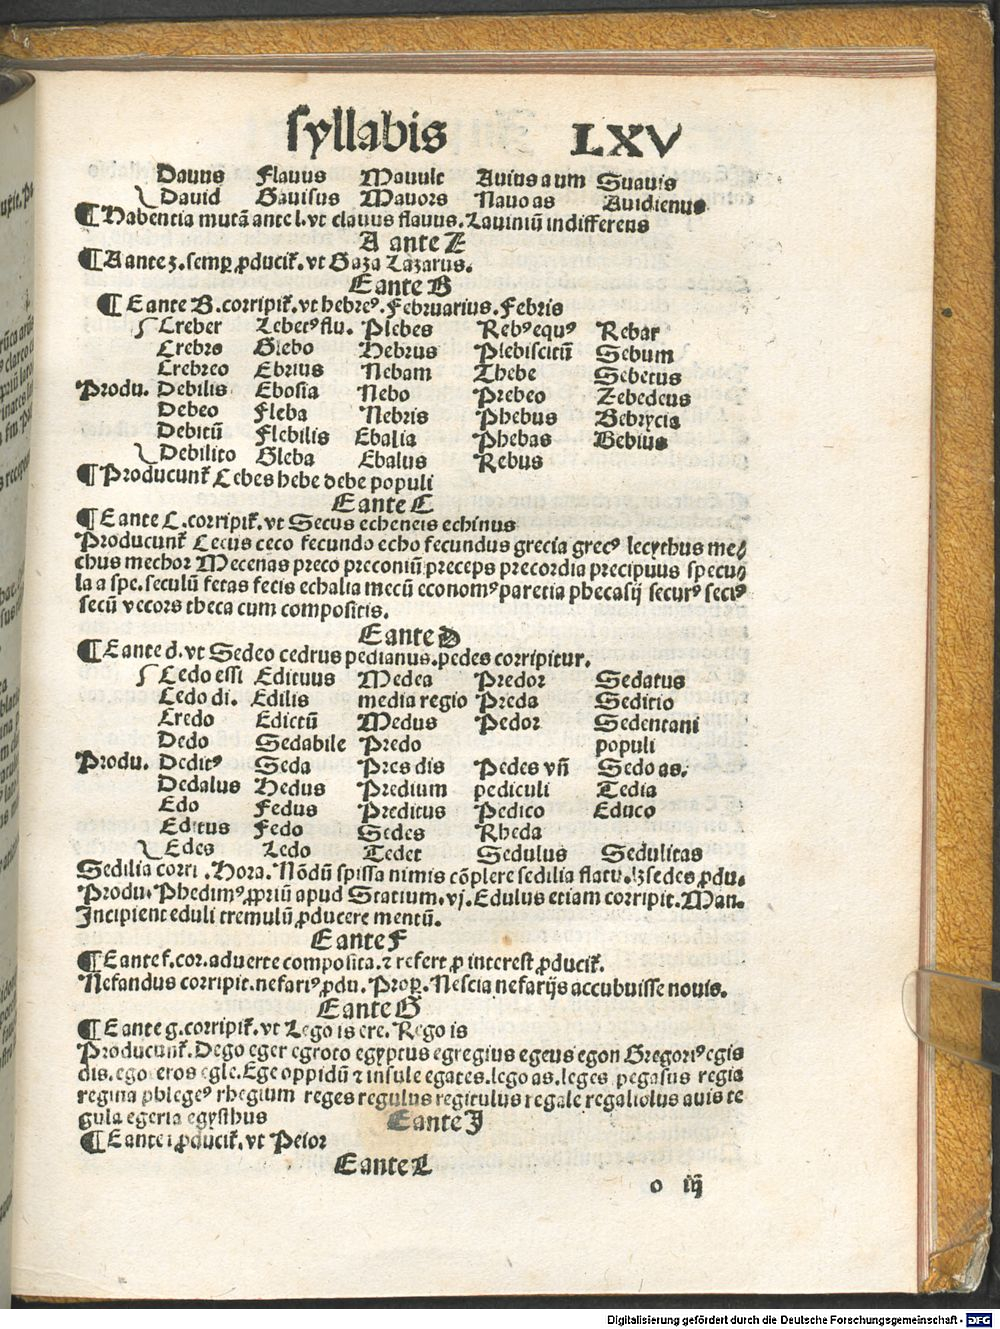 syllabis LXV
Dauus Flauus Mauult Auius a um Suauis
Dauid Gauisus Mauors Nauo as Auidienus
¶ Habentia mutā ante l. vt clauus flauus. Lauiniū indifferens
A ante Z
¶ A ante z. semꝑ ꝓducit̄. vt Gaza Lazarus.
E ante B
¶ E ante B. corripit̄. vt hebreꝰ. Februarius. Febris
Creber Lebetꝰ flu. Plebes Rebꝰ equꝰ Rebar
Crebro Glebo Hebrus Plebiscitū Sebum
Crebreo Ebrius Nebam Thebe Sebetus
Produ. Debilis Ebosia Nebo Prebeo Zebedeus
Debeo Fleba Nebris Phebus Bebrycia
Debitū Flebilis Ebalia Phebas Bebius
Debilito Gleba Ebalus Rebus
¶ Producunt̄ Lebes hebe debe populi
E ante C
¶ E ante C. corripit̄. vt Secus echeneis echinus
Producunt̄ Cecus ceco fecundo echo fecundus grecia grecꝰ lecythus me⸗
chus mechor Mecenas preco preconiū preceps precordia precipuus specu⸗
la a spe. seculū fetas fecis echalia mecū economꝰ paretia phecasij securꝰ seciꝰ
secū vecors theca cum compositis.
E ante D
¶ E ante d. vt Sedeo cedrus pedianus. pedes corripitur.
Cedo essi Edituus Medea Predor Sedatus
Cedo di. Edilis media regio Preda Seditio
Credo Edictū Medus Pedor Sedentani
Dedo Sedabile Predo populi
Produ. Deditꝰ Seda Pres dis Pedes vn̄ Sedo as.
Dedalus Hedus Predium pediculi Tedia
Edo Fedus Preditus Pedico Educo
Editus Fedo Sedes Rheda
Edes Ledo Tedet Sedulus Sedulitas
Sedilia corri. Hora. Nōdū spissa nimis cōplere sedilia flatu. lꝫ sedes ꝓdu.
Produ. Phedimꝰ ꝓpriū apud Statium. vj. Edulus etiam corripit. Man.
Incipient eduli tremulū ꝓducere mentū.
E ante F
¶ E ante f. cor. aduerte composita. ⁊ refert ꝓ interest ꝓducit̄.
Nefandus corripit. nefariꝰ ꝓdu. Prop. Nescia nefarijs accubuisse nouis.
E ante G
¶ E ante g. corripit̄. vt Lego is ere. Rego is
Producunt̄. Dego eger egroto egyptus egregius egeus egon Gregoriꝰ egis
dis. ego eros egle. Ege oppidū ⁊ insule egates. lego as. leges pegasus regia
regina phlegeꝰ rhegium reges regulus regitulus regale regaliolus auis te
gula egeria egysthus E ante I
¶ E ante i ꝓducit̄. vt Peior
E ante L
o iij
Digitalisierung gefördert durch die Deutsche Forschungsgemeinschaft - DFG